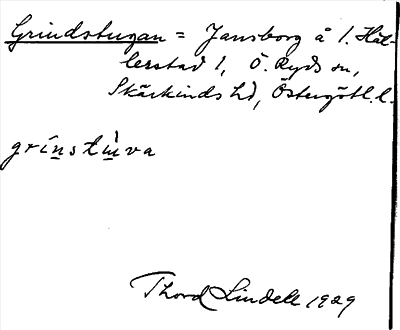 Grindstugan = Jansborg å 1. Häl-
lerstad 1, Ö. Ryds sn,
Skärkinds hd, Östergötl. l.
grínstùva
Thord Lindell 1929